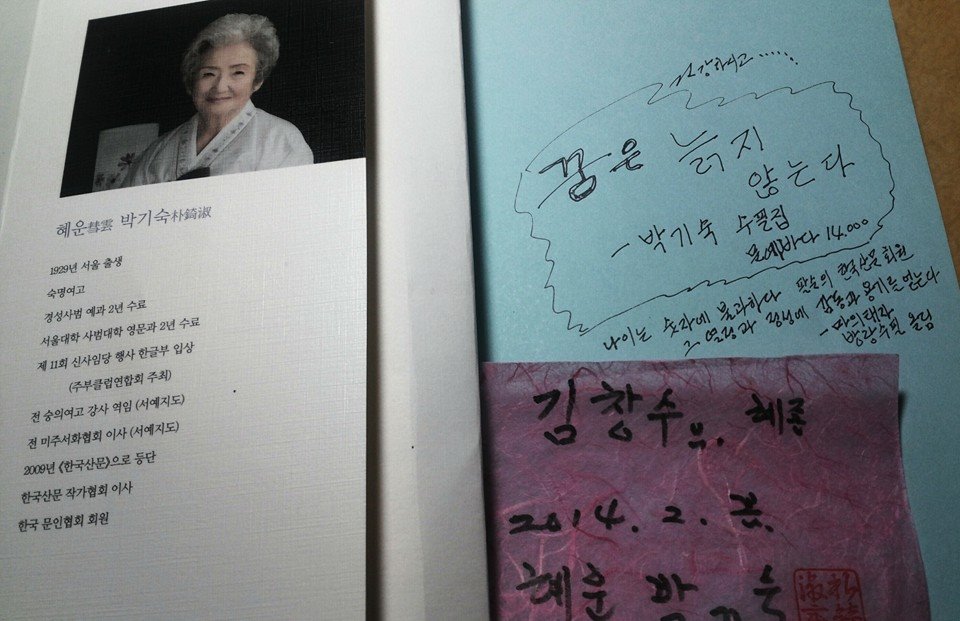 혜운彗雲 박기숙朴錡淑
1929년 서울 출생
숙명여고
경성사범 예과 2년 수료
서울대학 사범대학 영문과 2년 수료
제 11회 신사임당 행사 한글부 입상
(주부클럽연합회 주최)
전 숭의여고 강사 역임 (서예지도)
전 미주서화협회 이사 (서예지도)
2009년 《한국산문》으로 등단
한국산문 작가협회 이사
한국 문인협회 회원
건강하시고 .....!
꿈은 늙지
않는다
- 박기숙 수필집
문예바다 14.000
나이는 숫자에 불과하다 팔순의 한국산문 회원
그 열정과 정성에 감동과 용기를 얻는다
- 마의태자
방랑수필 올림
김창수 혜종
2014. 2.
혜운 박기숙